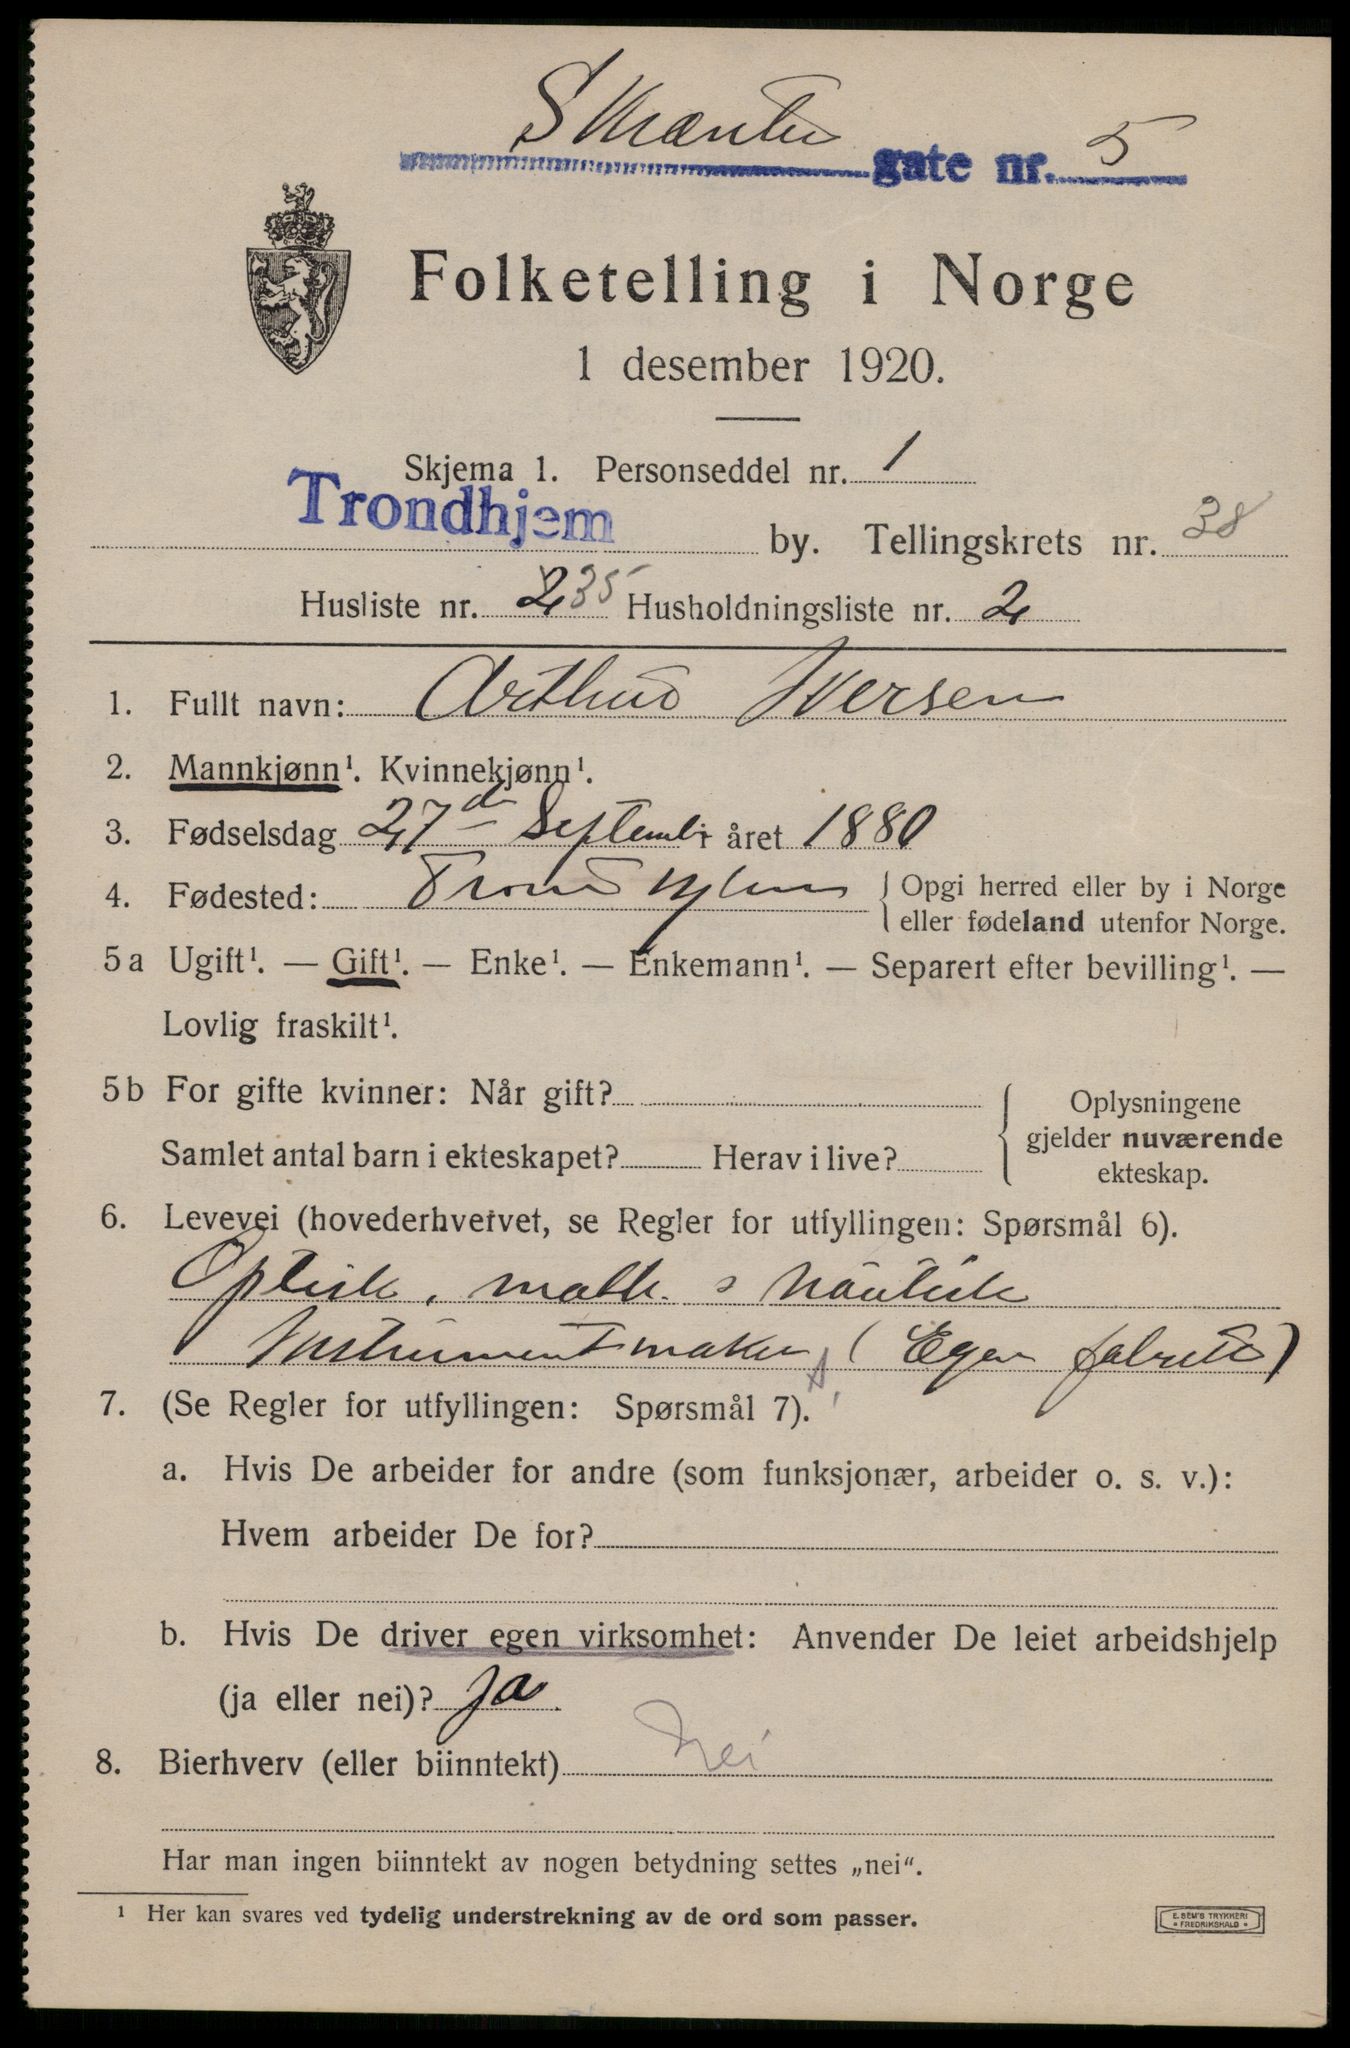 gate nr. 5
Folketelling i Norge
1 desember 1920.
Skjema 1. Personseddel nr. 1
Trondhjem by. Tellingskrets nr. 38
Husliste nr. 235 Husholdningsliste nr. 2
1. Fullt navn: Arthur Iversen
2. Mannkjønn¹. Kvinnekjønn¹.
3. Fødselsdag 27de Septembr året 1880
4. Fødested: Trondhjem { Opgi herred eller by i Norge
eller fødeland utenfor Norge.
5a Ugift¹. — Gift¹. — Enke¹. — Enkemann¹. — Separert efter bevilling¹. —
Lovlig fraskilt¹.
5b For gifte kvinner: Når gift? { Oplysningene
gjelder nuværende
Samlet antal barn i ekteskapet? Herav i live?
ekteskap.
6. Levevei (hovederhvervet, se Regler for utfyllingen: Spørsmål 6).
Optisk, math. & Nautisk
Instrumentmaker (Egen fabrik)
7. (Se Regler for utfyllingen: Spørsmål 7).
a. Hvis De arbeider for andre (som funksjonær, arbeider o. s. v.):
Hvem arbeider De for?
b. Hvis De driver egen virksomhet: Anvender De leiet arbeidshjelp
(ja eller nei)? Ja
8. Bierhverv (eller biinntekt) Nei
Har man ingen biinntekt av nogen betydning settes „nei“.
¹ Her kan svares ved tydelig understrekning av de ord som passer.
E. SEM'S TRYKKERI
* FREDRIKSHALD *